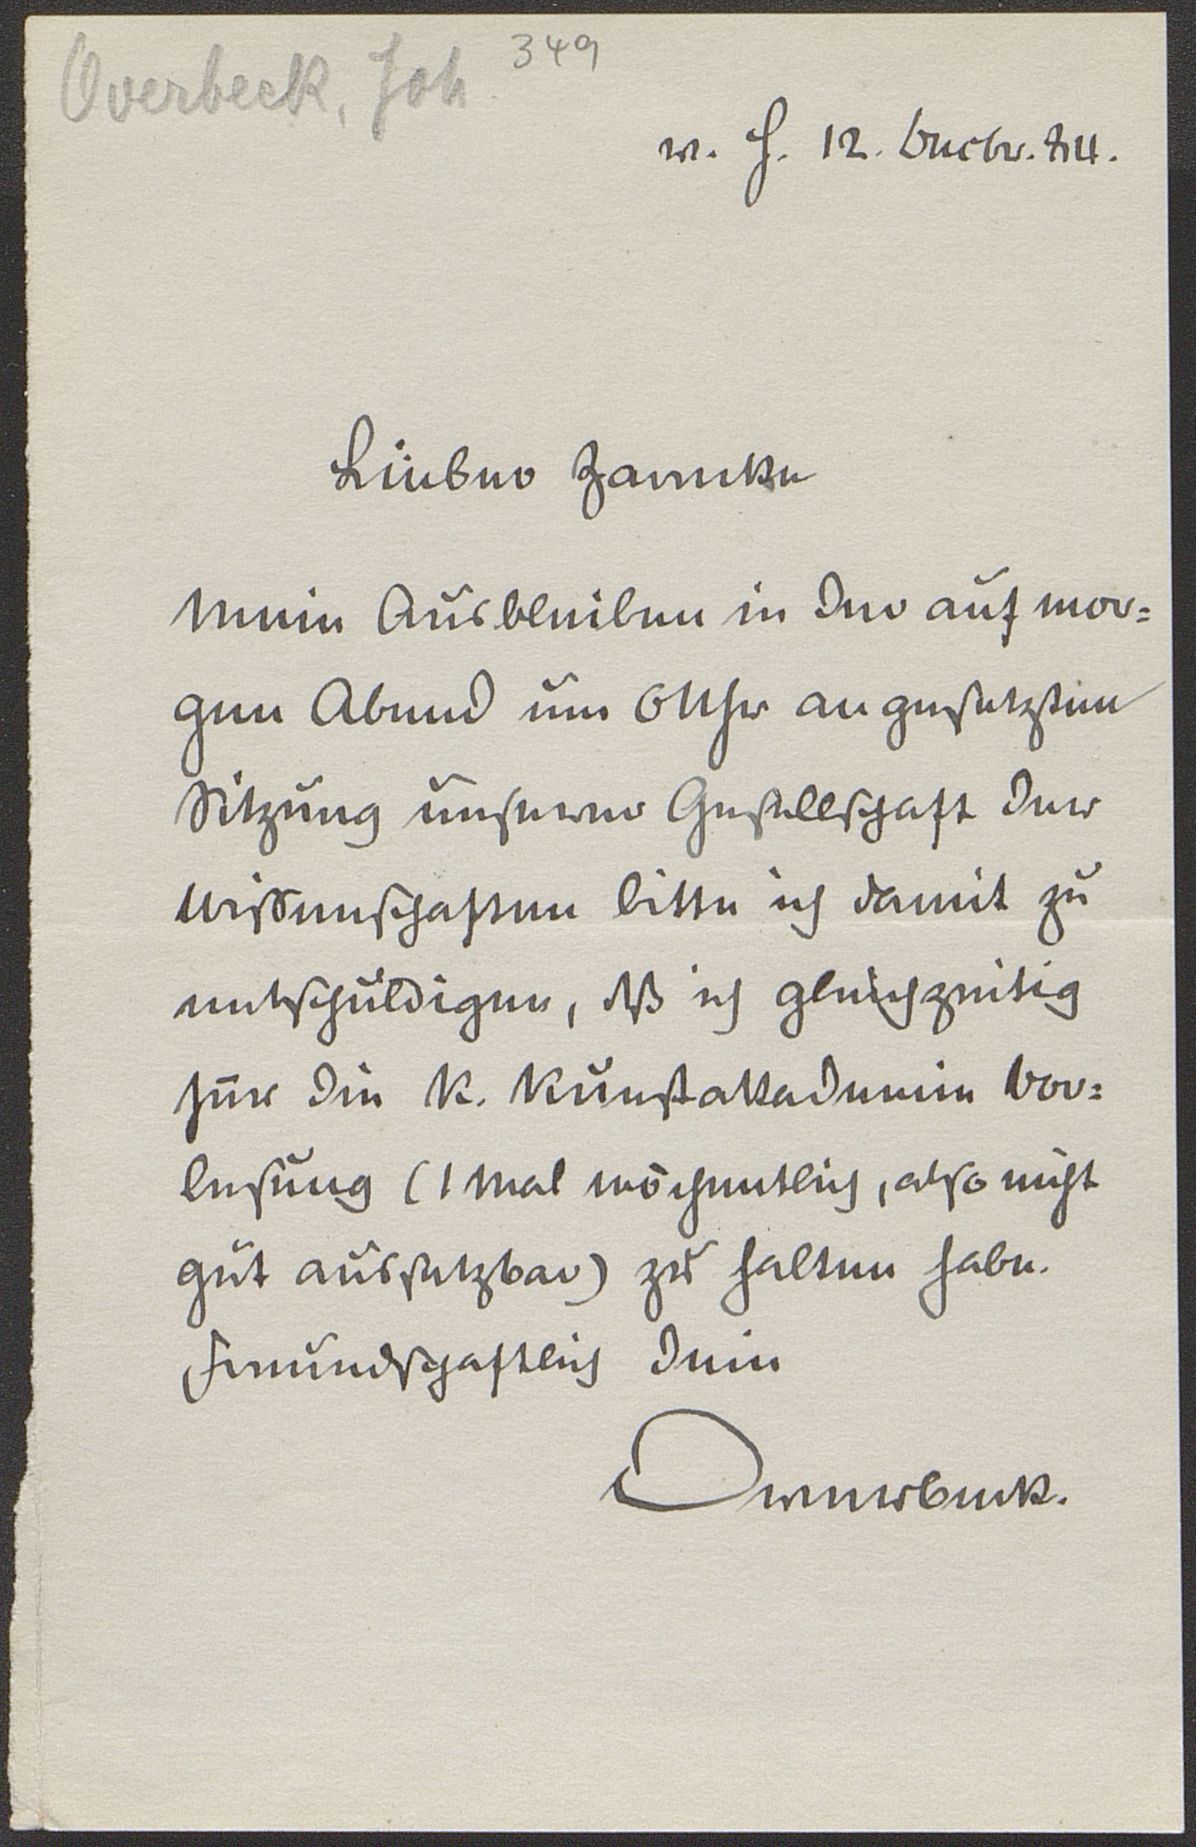 Overbeck, Joh. 349
v. H. 12. Decbr. 84.
Lieber Zarncke
Mein Ausbleiben in der auf mor=
gen Abend um 6 Uhr angesetzten
Sitzung unserer Gesellschaft der
Wissenschaften bitte ich damit zu
entschuldigen, dß ich gleichzeitig
für die K. Kunstakademie Vor=
lesung (1 Mal wöchentlich, also nicht
gut aussetzbar) zu halten habe.
Freundschaftlich Dein
Overbeck.